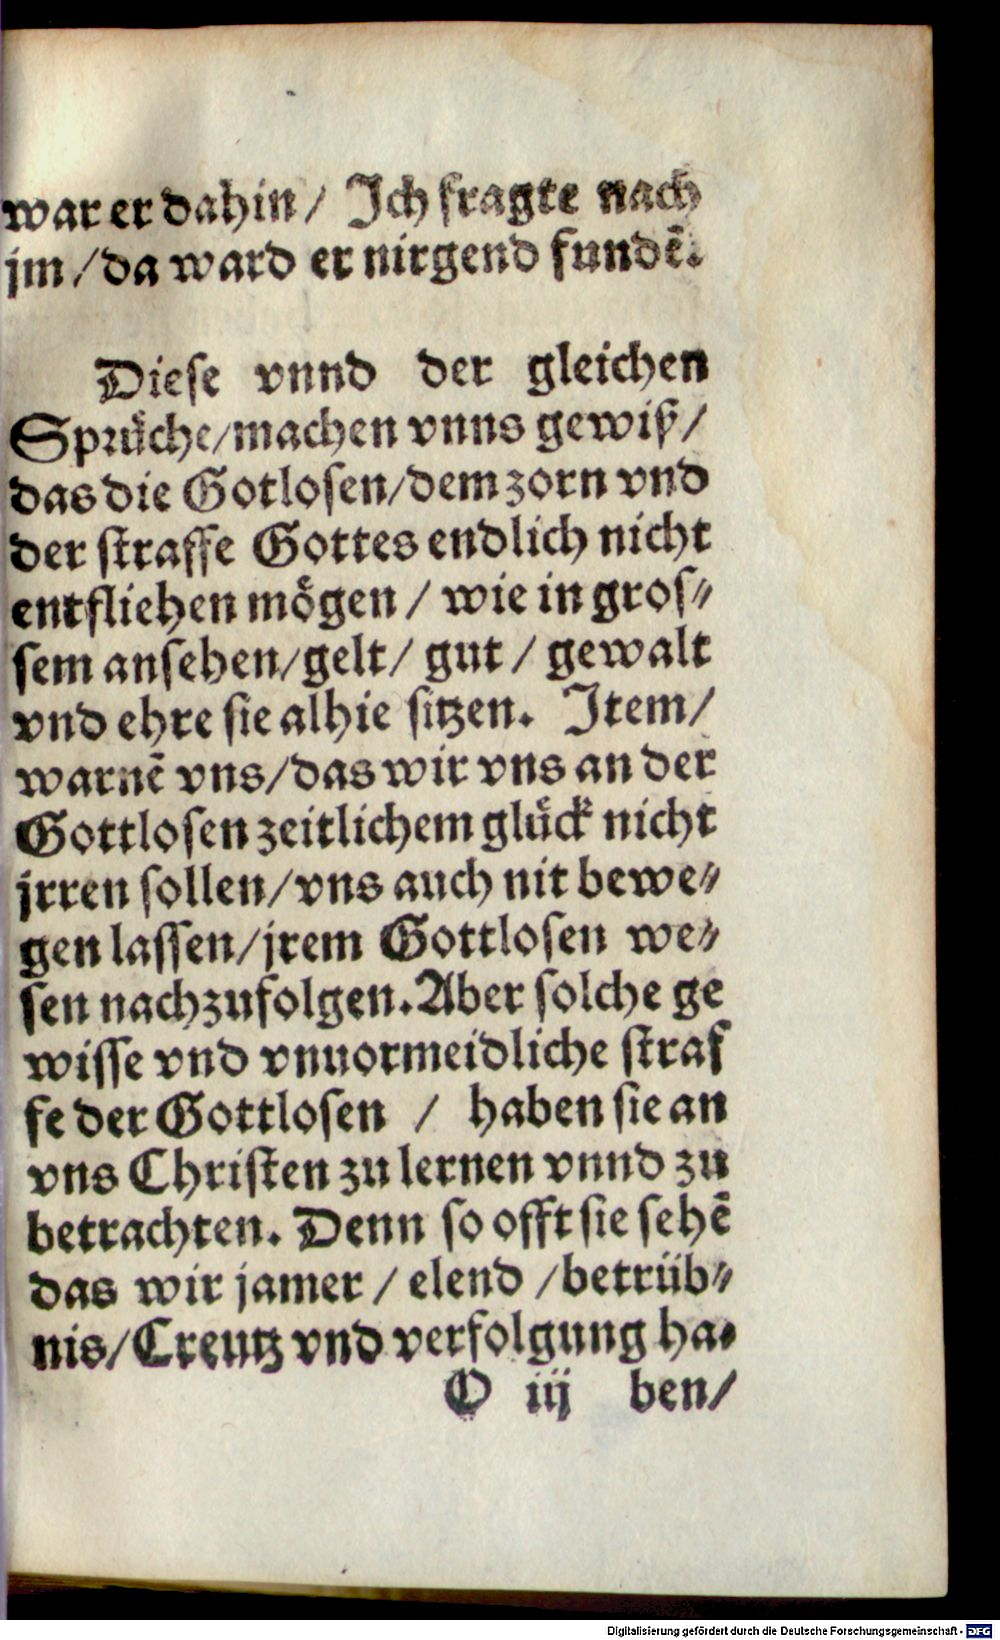 war er dahin / Ich fragte nach
jm / da ward er nirgend fundē.
Diese vnnd der gleichen
Sprüche / machen vnns gewiß /
das die Gotlosen / dem zorn vnd
der straffe Gottes endlich nicht
entfliehen mögen / wie in gros⸗
sem ansehen / gelt / gut / gewalt
vnd ehre sie alhie sitzen. Item /
warnē vns / das wir vns an der
Gottlosen zeitlichem glück nicht
jrren sollen / vns auch nit bewe⸗
gen lassen / jrem Gottlosen we⸗
sen nachzufolgen. Aber solche ge
wisse vnd vnuormeidliche straf
fe der Gottlosen / haben sie an
vns Christen zu lernen vnnd zu
betrachten. Denn so offt sie sehē
das wir jamer / elend / betrüb⸗
nis / Creutz vnd verfolgung ha⸗
O iij ben /
Digitalisierung gefördert durch die Deutsche Forschungsgemeinschaft - DFG